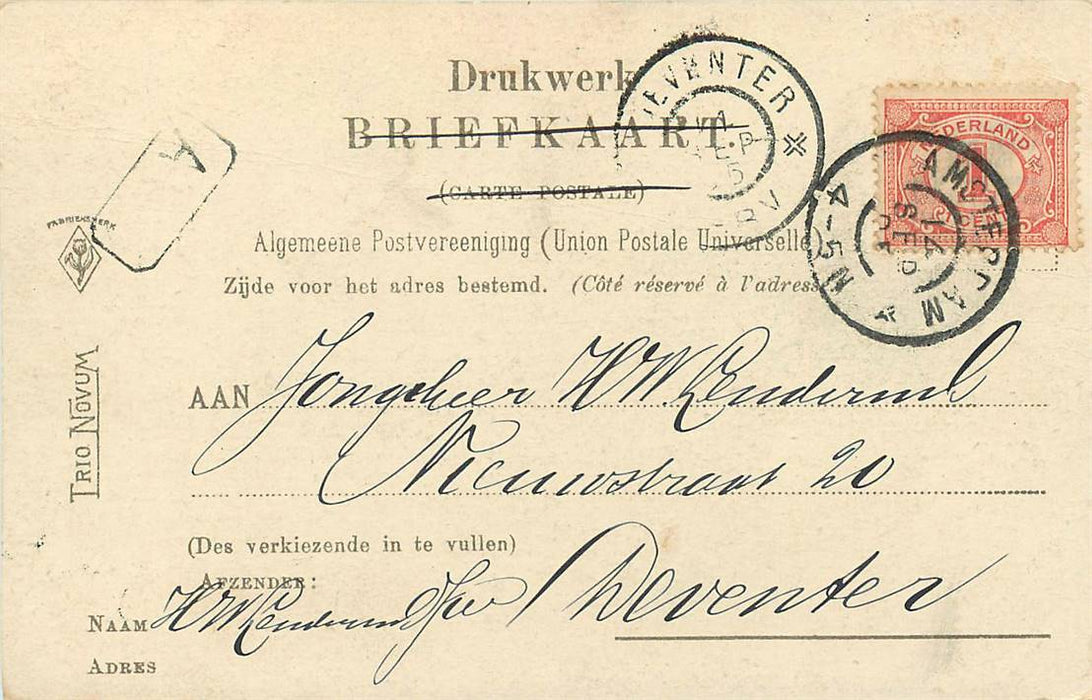 Drukwerk
BRIEFKAART.
(CARTE POSTALE)
Algemeene Postvereeniging (Union Postale Universelle)
Zijde voor het adres bestemd. (Côté réservé à l'adresse
DEVENTER
NEDERLAND
1
AMSTERDAM
14
SEP
4-5N
A
FABRIEKSMERK
TRIO NOVUM
AAN Jongeheer HW
Nieuwstraat 20
Deventer
(Des verkiezende in te vullen)
AFZENDER:
NAAM HW
ADRES